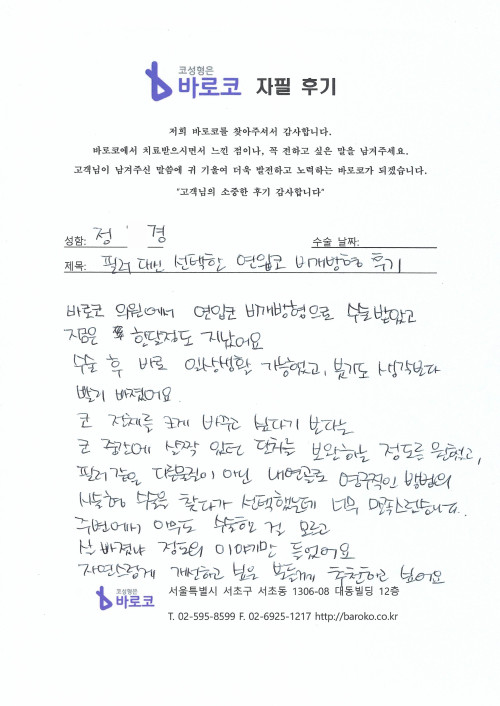 코성형은
바로코 자필 후기
저희 바로코를 찾아주셔서 감사합니다.
바로코에서 치료받으시면서 느낀 점이나, 꼭 전하고 싶은 말을 남겨주세요.
고객님이 남겨주신 말씀에 귀 기울여 더욱 발전하고 노력하는 바로코가 되겠습니다.
"고객님의 소중한 후기 감사합니다"
성함: 정 경 수술 날짜:
제목: 필러 대신 선택한 연압코 비개방형 후기
바로코 의원에서 연압코 비개방형으로 수술받았고
지금은 한달정도 지났어요
수술 후 바로 일상생활 가능했고, 붓기도 생각보다
빨리 빠졌어요.
코 전체를 크게 바꾸고 싶다기 보다는
코 중간에 살짝 있던 단차는 보완하는 정도를 원했고,
필러같은 이 아닌 내연골로 영구적인 방법의
시술형 수술을 찾다가 선택했는데 너무 만족스럽습니다.
주변에서 아무도 수술한 걸 모르고
살 빠졌냐 정도의 이야기만 들었어요
자연스럽게 개선하고 싶은 분들께 추천하고 싶어요
코성형은
바로코
서울특별시 서초구 서초동 1306-08 대동빌딩 12층
T. 02-595-8599 F. 02-6925-1217 http://baroko.co.kr